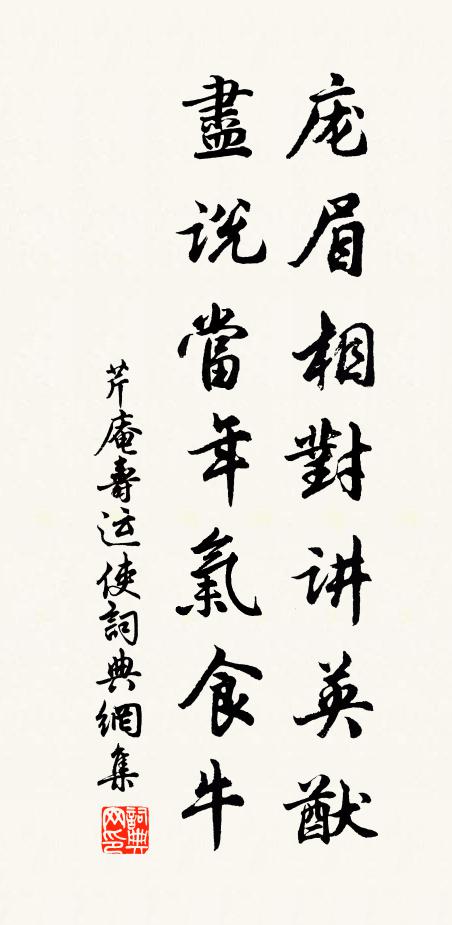 庞眉相對讲英猷
盡说當年氣食牛
芹庵壽运使詞典網集
詞典网印